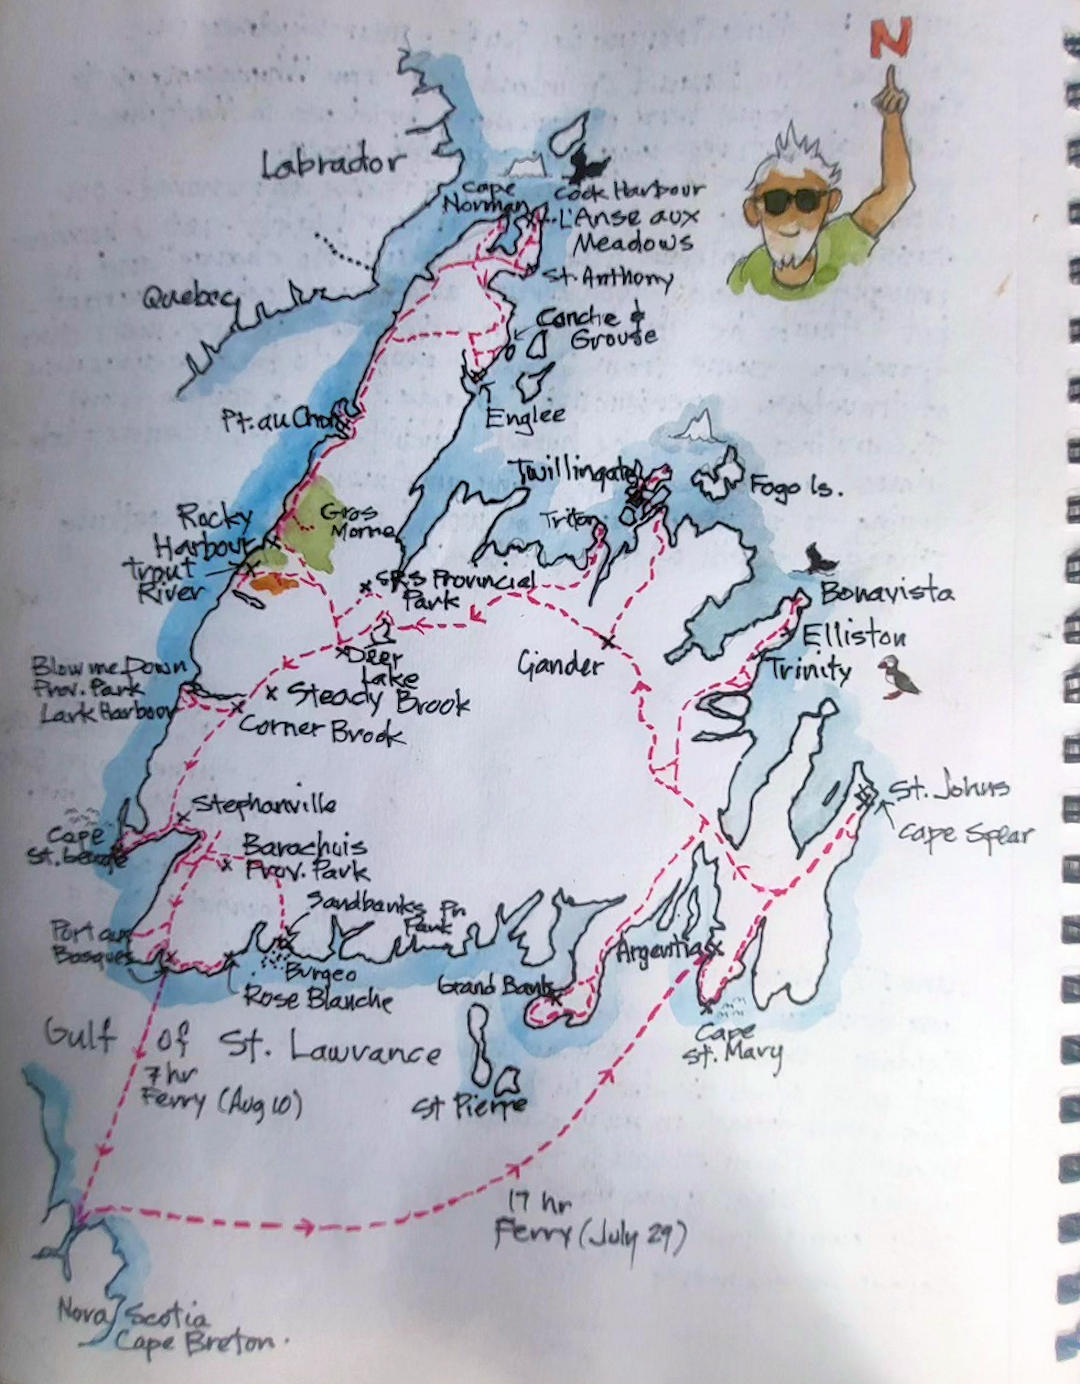 N
Labrador
Cape
Norman
Cook Harbour
L'Anse aux
Meadows
St. Anthony
Quebec
Conche &
Grouse
Englee
Pt. au Choix
Twillingate
Fogo Is.
Triton
Rocky
Harbour
Trout
River
Gros
Morne
SRS Provincial
Park
Bonavista
Elliston
Trinity
Gander
Deer
Lake
Blow me Down
Prov. Park
Lark Harbour
Steady Brook
Corner Brook
Stephanville
Cape
St. George
Barachuis
Prov. Park
St. Johns
Cape Spear
Sandbanks Pr.
Park
Port aux
Basques
Burgeo
Rose Blanche
Grand Bank
Argentia
Cape
St. Mary
Gulf of St. Lawvance
7 hr
Ferry (Aug 10)
St Pierre
17 hr
Ferry (July 29)
Nova Scotia
Cape Breton.